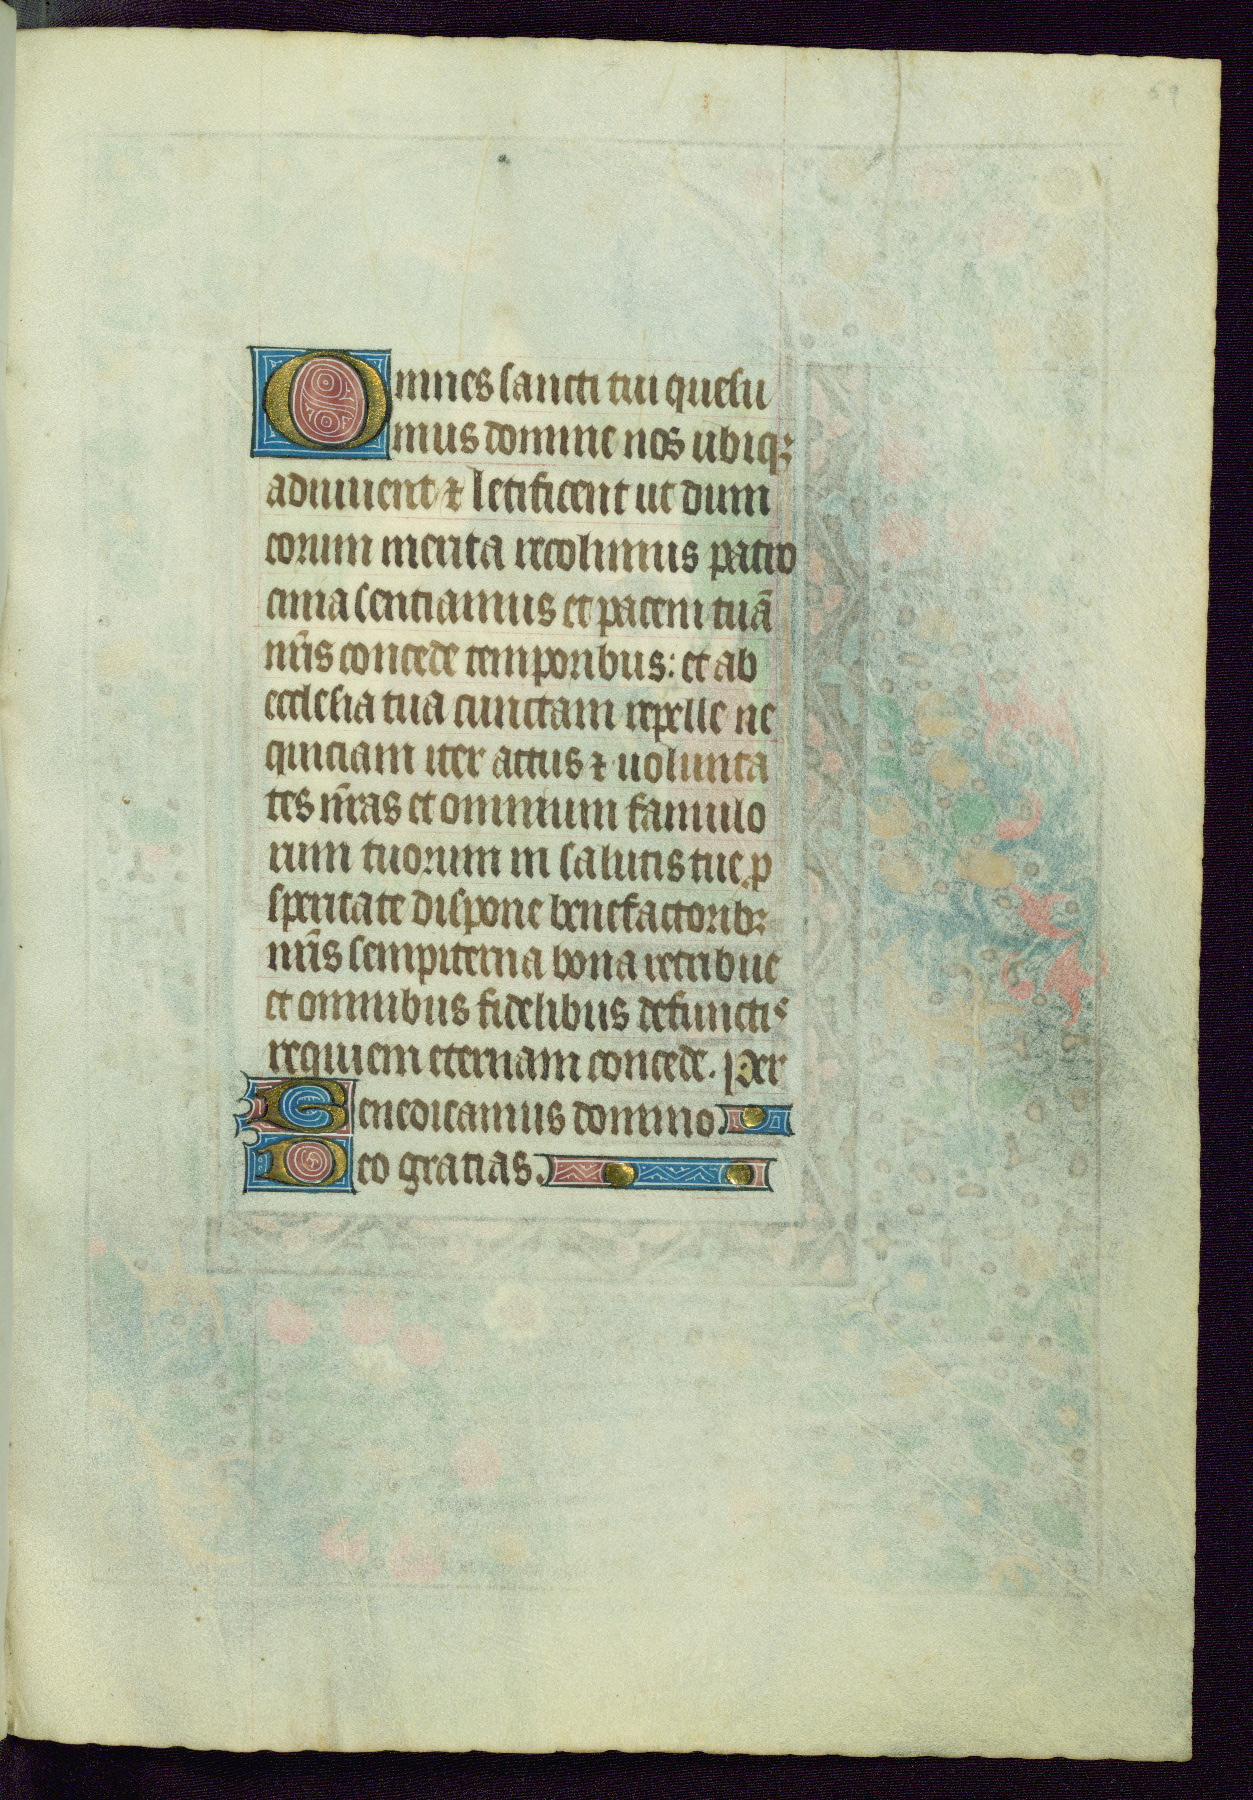 59
Omnes sancti tui quesu
mus domine nos ubiqꝫ
adiuuent ⁊ letificent ut dum
eorum merita recolimus patro
cinia sentiamus et pacem tuā
nr̄is concede temporibus: et ab
ecclesia tua cunctam repelle ne
quiciam iter actus ⁊ uolunta
tes nr̄as et omnium famulo
rum tuorum in salutis tue ꝓ
speritate dispone benefactoribꝫ
nr̄is sempiterna bona retribue
et omnibus fidelibus defunctis
requiem eternam concede. Per
Benedicamus domino.
Deo gratias.